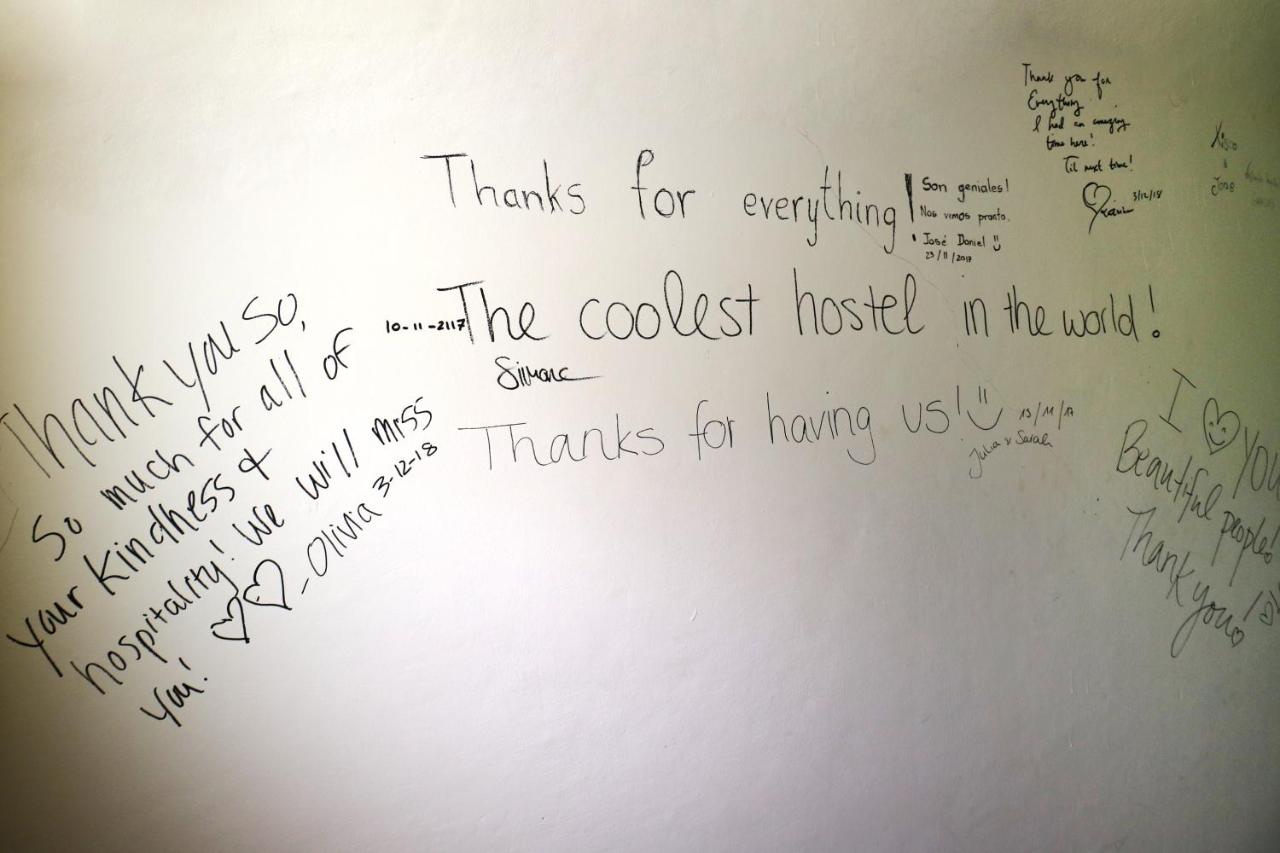 Thank you so,
So much for all of
your kindness &
hospitality! We will miss
you!
- Olivia 3-12-18
Thanks for everything!
10-11-2117
The coolest hostel in the world!
Simone
Thanks for having us!
13/11/17
Julia & Sarah
Son geniales!
Nos vimos pronto.
José Daniel
23/11/2017
Thank you for
Everything
I had an amazing
time here!
Til next time!
3/12/18
Jose
I YOU
Beautiful people!
Thank you!